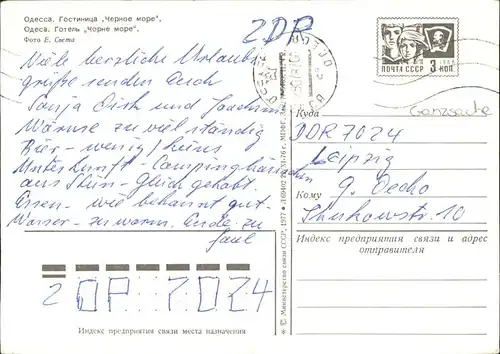 Одесса. Гостиница „Черное море".
Одеса. Готель „Чорне море".
Фото Е. Света
ZDR
ПОЧТА СССР 3 КОП
Ganzsache
Viele herzliche Urlaubs
grüße senden Euch
und Joachim
zu viel ständig
Bier - wenig
Unterkunft - Campinghäuschen
aus Stein - Gleich gehabt.
Essen - wie bekannt gut.
Wasser - zu warm. Ende zu
faul
Куда
DDR 7024
Leipzig
Кому
G. Oecho
Shukowstr. 10
Индекс предприятия связи и адрес
отправителя
© Министерство связи СССР, 1977
2 DP 7024
Индекс предприятия связи места назначения